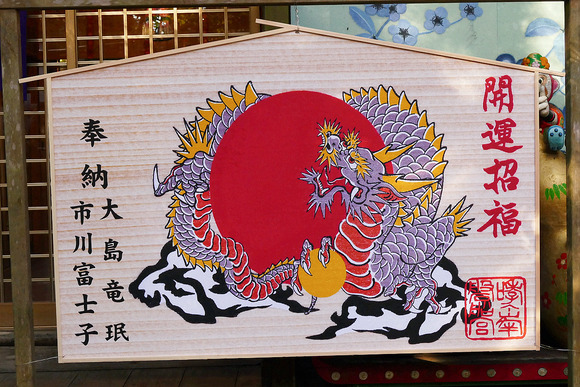 開運招福
奉納
大島竜珉
市川富士子